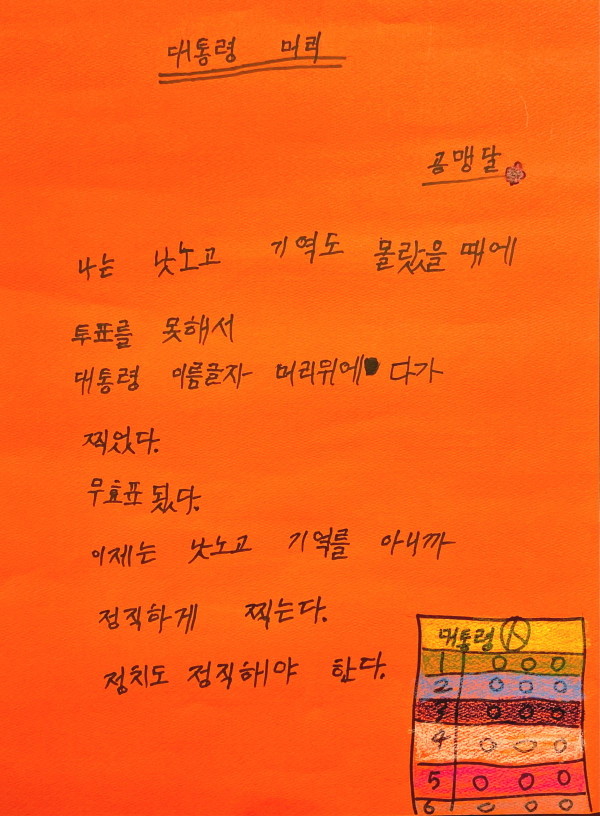 대통령 머리
공맹달
나는 낫노고 기역도 몰랐을 때에
투표를 못해서
대통령 이름글자 머리위에 다가
찍었다.
무효표 됬다.
이제는 낫노고 기역를 아니까
정직하게 찍는다.
정치도 정직해야 한다.
대통령
1 ○ ○ ○
2 ○ ○ ○
3 ○ ○ ○
4 ○ ○ ○
5 ○ ○ ○
6 ○ ○ ○